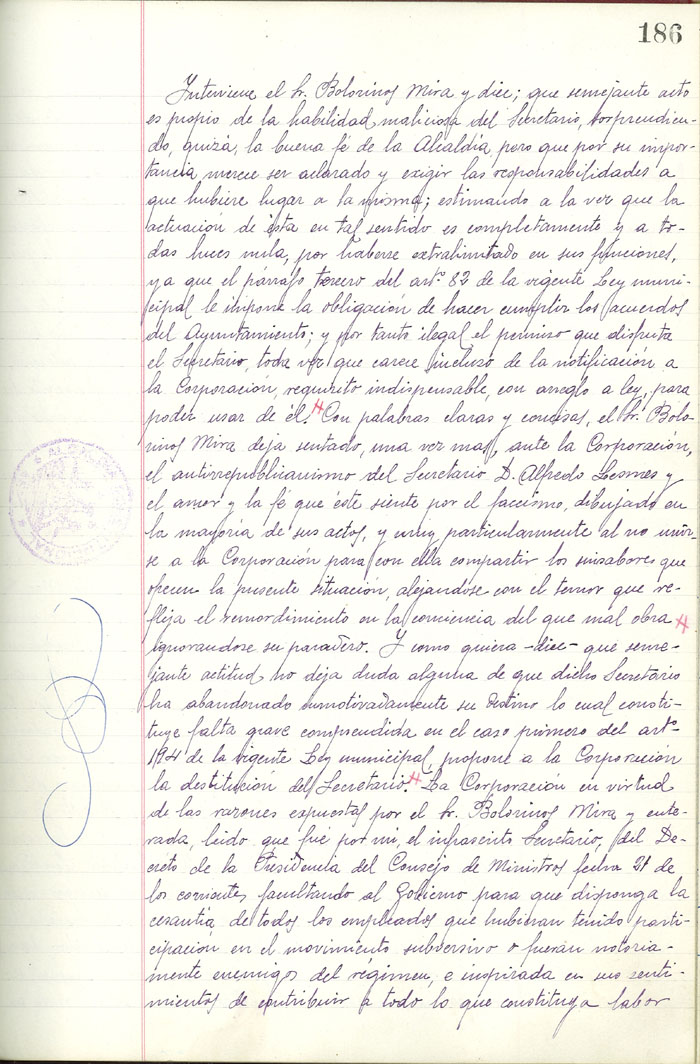 186
Interviene el Sr. Bolorinos Mira y dice; que semejante acto
es propio de la habilidad maliciosa del Secretario, sorprendien-
do, quizá, la buena fé de la Alcaldía, pero que por su impor-
tancia merece ser aclarado y exigir las responsabilidades a
que hubiere lugar a la misma; estimando a la vez que la
actuación de ésta en tal sentido es completamente y a to-
das luces nula, por haberse extralimitado en sus funciones,
ya que el párrafo tercero del artº 82 de la vigente Ley muni-
cipal le impone la obligación de hacer cumplir los acuerdos
del Ayuntamiento; y por tanto ilegal el permiso que disfruta
el Secretario, toda vez que carece incluso de la notificación a
la Corporación, requisito indispensable, con arreglo a ley, para
poder usar de él. # Con palabras claras y concisas, el Sr. Bolo-
rinos Mira deja sentado, una vez mas, ante la Corporación,
el antirrepublicanismo del Secretario D. Alfredo Lesmes y
el amor y la fé que éste siente por el faccismo, dibujado en
la mayoria de sus actos, y muy particularmente al no unir-
se a la Corporación para con ella compartir los sinsabores que
ofrecen la presente situación, alejandose con el temor que re-
fleja el remordimiento en la conciencia del que mal obra #
ignorandose su paradero. Y como quiera -dice- que seme-
jante actitud no deja duda alguna de que dicho Secretario
ha abandonado inmotivadamente su destino lo cual consti-
tuye falta grave comprendida en el caso primero del artº
194 de la vigente Ley municipal, propone a la Corporación
la destitución del Secretario. # La Corporación en virtud
de las razones expuestas por el Sr. Bolorinos Mira y ente-
rada, leido que fué por mi, el infrascrito Secretario, del De-
creto de la Presidencia del Consejo de Ministros fecha 21 de
los corrientes facultando al Gobierno para que disponga la
cesantia de todos los empleados que hubieran tenido parti-
cipación en el movimiento subversivo o fueran notoria-
mente enemigos del régimen, e inspirada en sus senti-
mientos de contribuir a todo lo que constituya labor